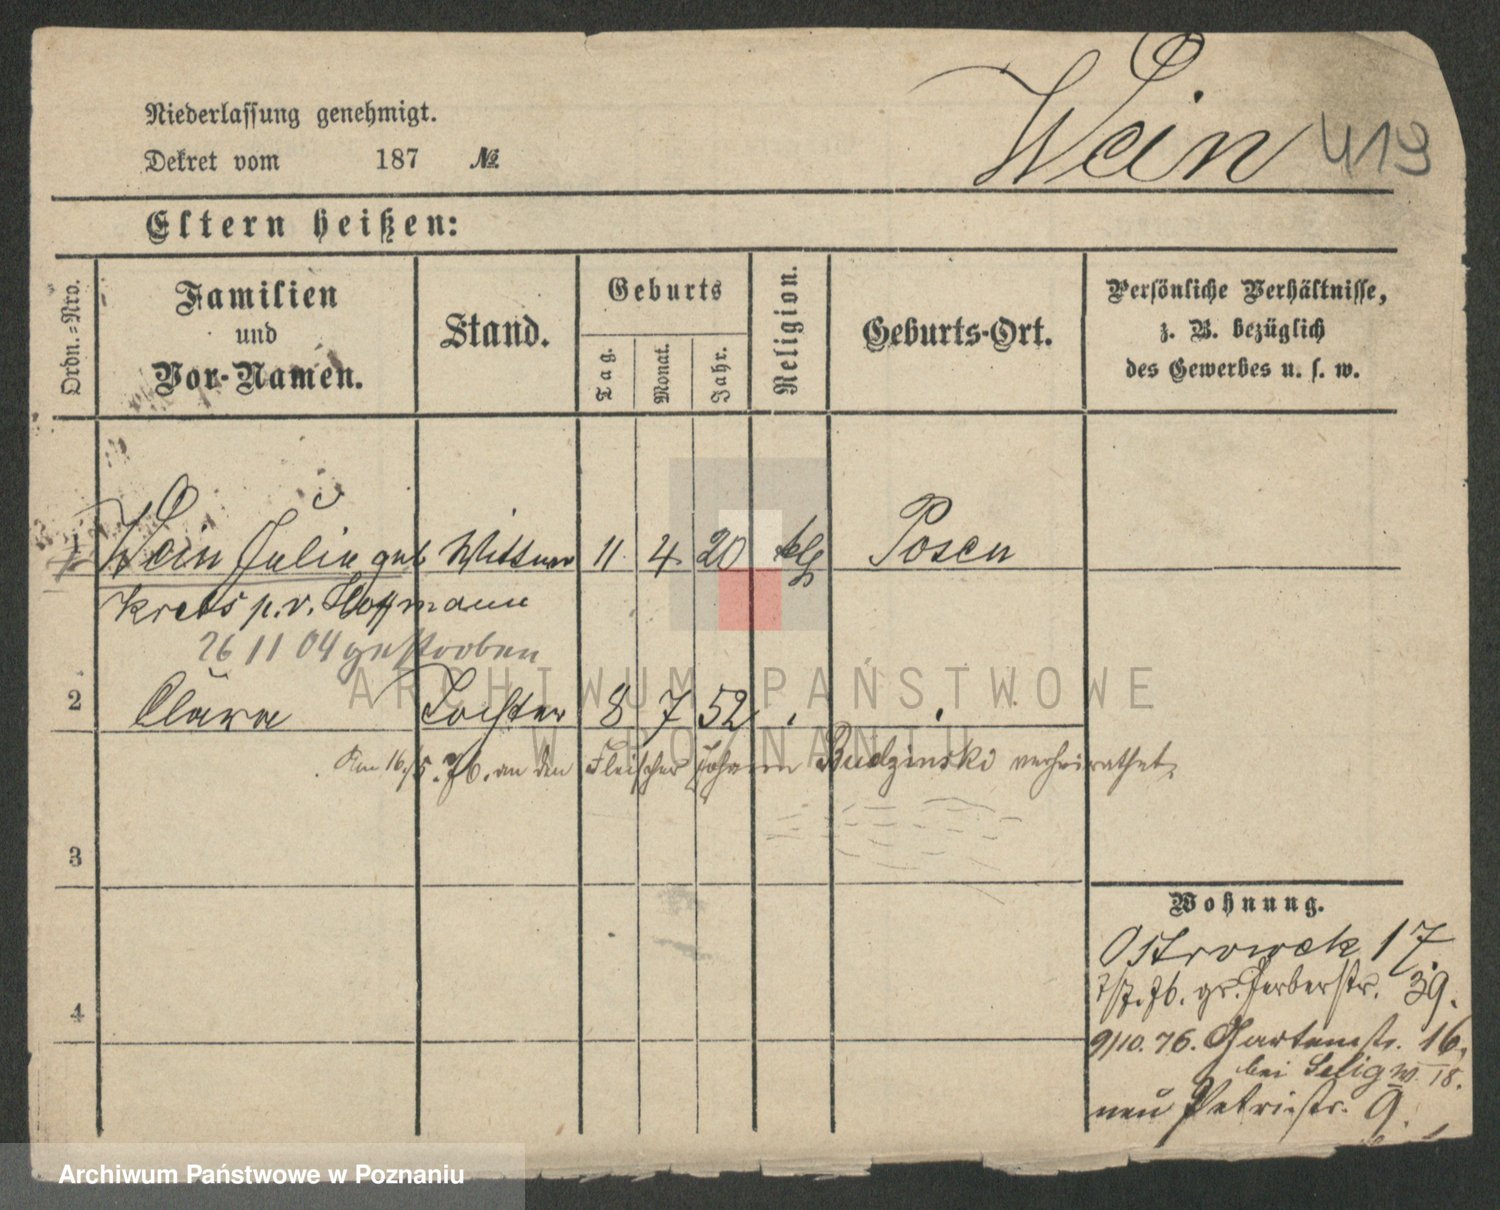 Wein 419
Niederlassung genehmigt.
Dekret vom 187 №
Eltern heißen:
Ordn.=Nro.
Familien
und
Vor-Namen.
Stand.
Geburts
Tag.
Monat.
Jahr.
Religion.
Geburts-Ort.
Persönliche Verhältnisse,
z. B. bezüglich
des Gewerbes u. s. w.
1 Wein Julie geb Wittwe 11 4 20 klg Posen
Krebs p. v. Hoffmann
26 11 04 gestorben
2 Clara Tochter 8 7 52
Am 16/5. 76. an den Fleischer Johann Budzinski verheirathet.
3
4
Wohnung.
Ostrowek 17.
7/7. 76. gr. Gerberstr. 39.
9/10. 76. Gartenstr. 16.
bei Selig W. 18.
neu Petristr. 9.
ARCHIWUM PAŃSTWOWE
W POZNANIU
Archiwum Państwowe w Poznaniu